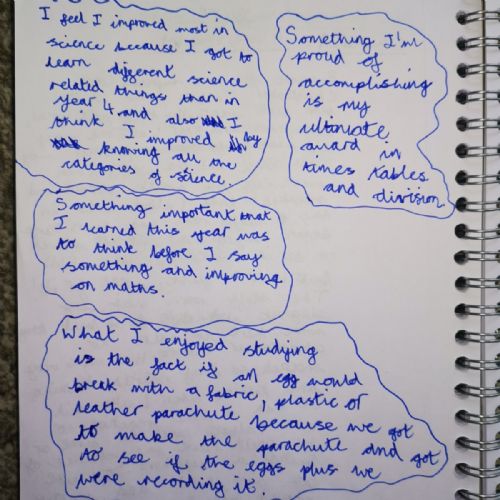 I feel I improved most in
science because I got to
learn different science
related things than in
year 4 and also I
think I improved by
knowing all the
categories of science.
Something I'm
proud of
accomplishing
is my
ultimate
award in
times tables
and division
Something important that
I learned this year was
to think before I say
something and improving
on maths.
What I enjoyed studying
is the fact if an egg would
break with a fabric, plastic or
leather parachute because we got
to make the parachute and got
to see if the eggs plus we
were recording it.